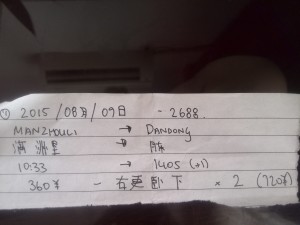 ① 2015/08月/09日 - 2688.
MANZHOULI → DANDONG
满洲里 →
10:33 → 1405 (+1)
360¥ - 卧下 × 2 (720¥)